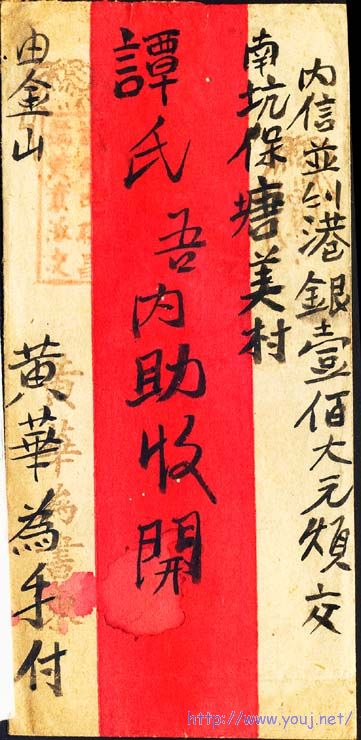 內信並付港銀壹佰大元煩交
南坑保塘美村
譚氏吾內助收開
由金山 黃華為手付
http://www.youj.net/